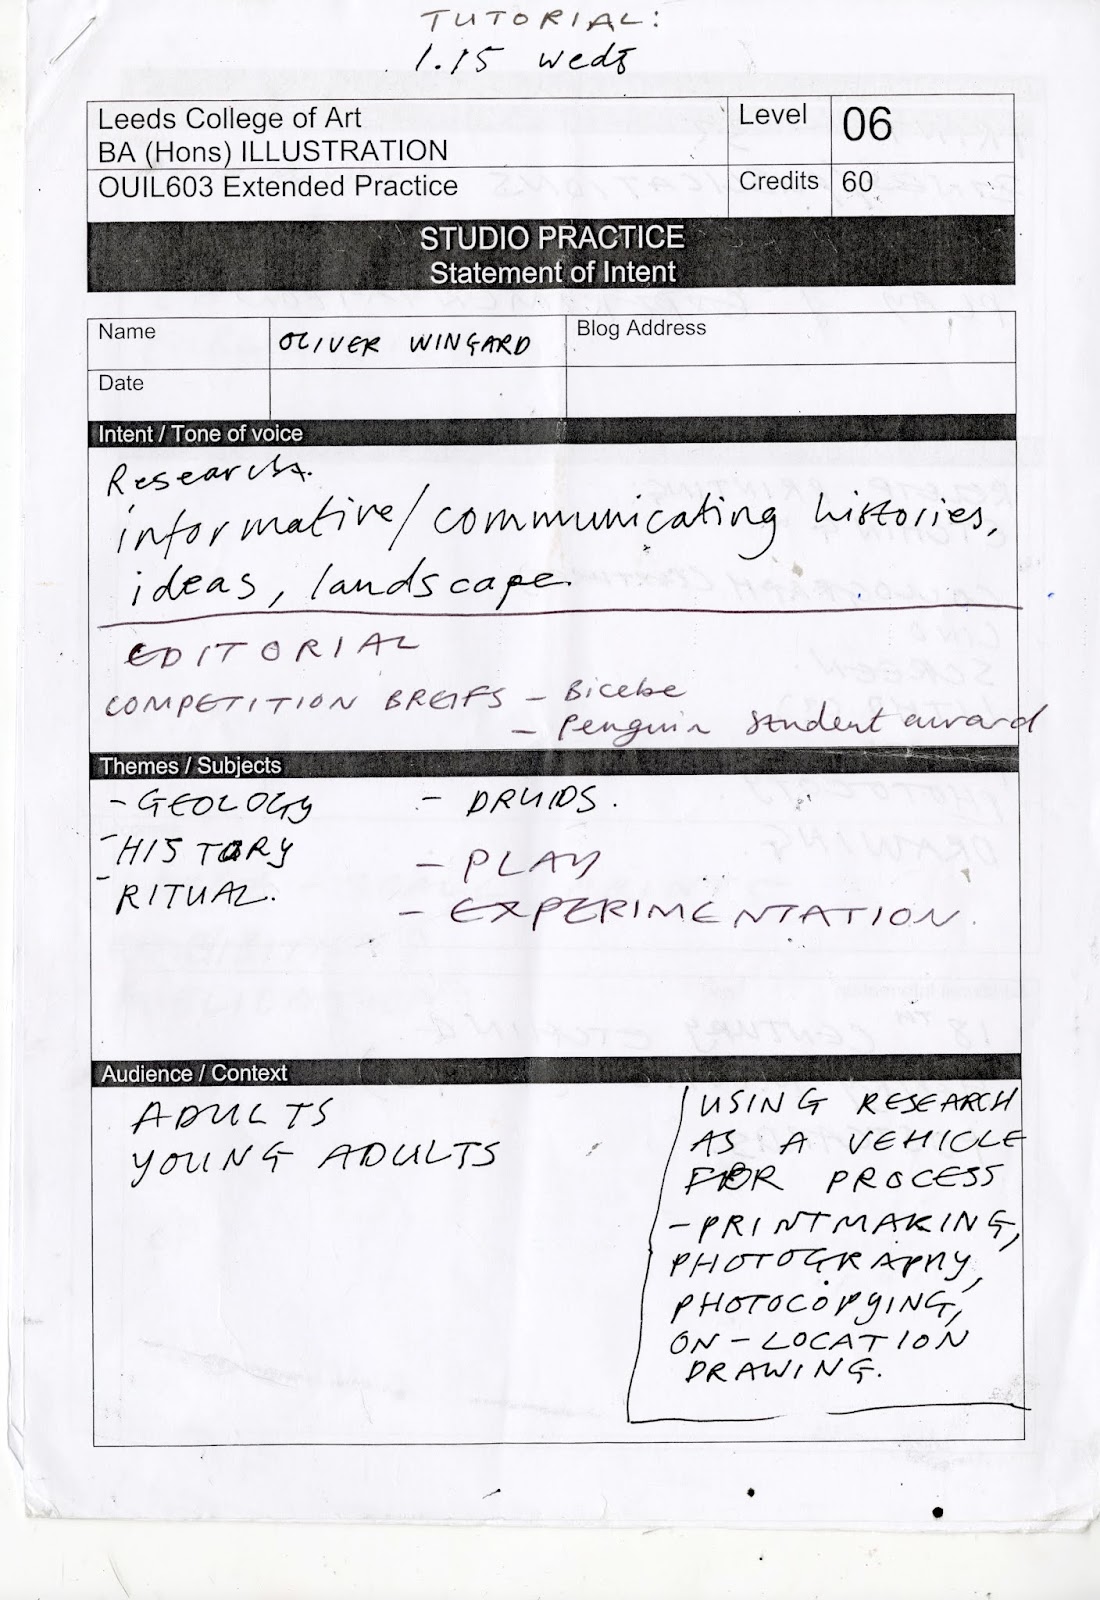 TUTORIAL:
1.15 weds
Leeds College of Art
BA (Hons) ILLUSTRATION
Level 06
OUIL603 Extended Practice
Credits 60
STUDIO PRACTICE
Statement of Intent
Name
OLIVER WINGARD
Blog Address
Date
Intent / Tone of voice
Research.
informative/communicating histories,
ideas, landscape.
EDITORIAL
COMPETITION BREIFS - Bicebe
- Penguin student award
Themes / Subjects
- GEOLOGY
- HISTORY
- RITUAL.
- DRUIDS.
- PLAY
- EXPERIMENTATION.
Audience / Context
ADULTS
YOUNG ADULTS
USING RESEARCH
AS A VEHICLE
FOR PROCESS
- PRINTMAKING,
PHOTOGRAPHY,
PHOTOCOPYING,
ON-LOCATION
DRAWING.